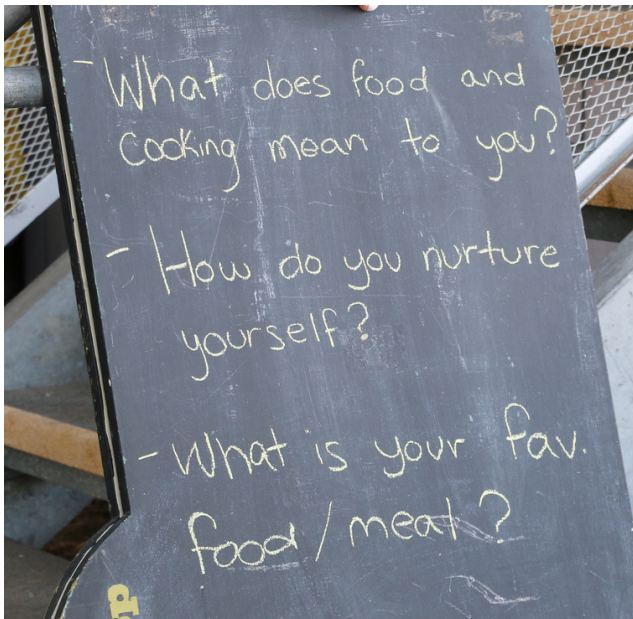 - What does food and
cooking mean to you?
- How do you nurture
yourself?
- What is your fav.
food/meal?